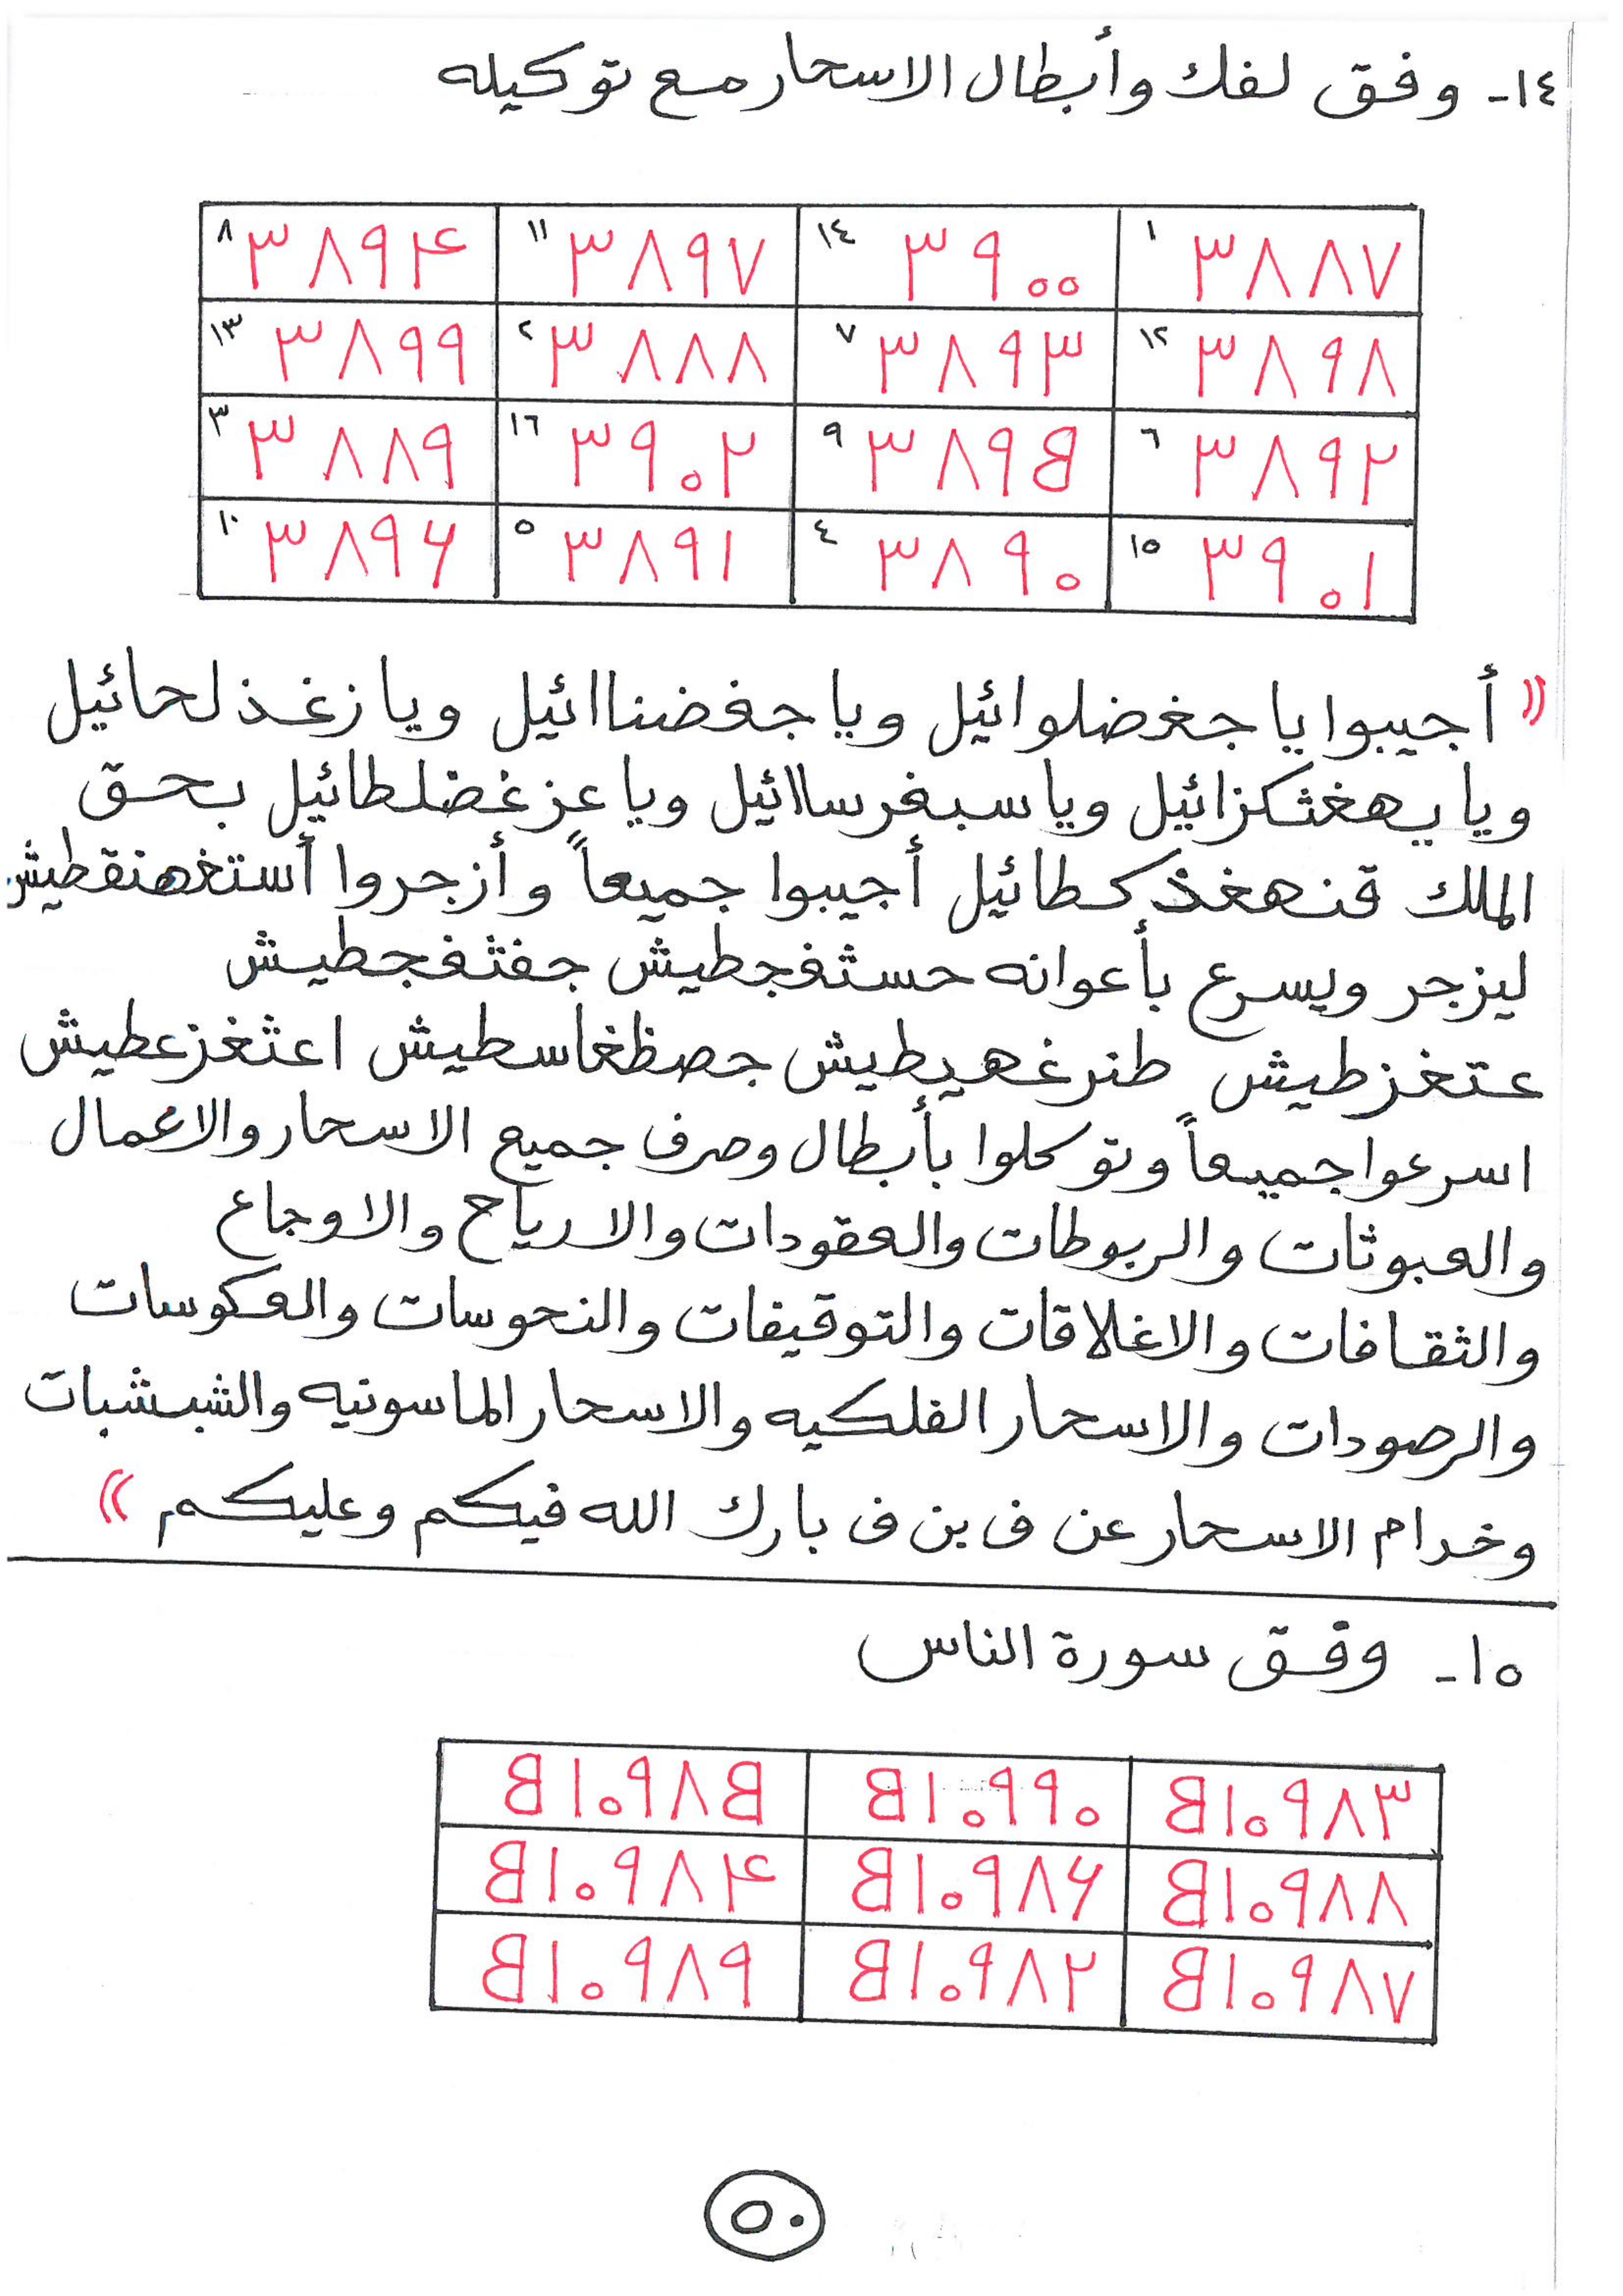 ١٤- وفق لفك وأبطال الاسحار مع توكيله
١ ٣٨٨٧ ١٤ ٣٩٠٠ ١١ ٣٨٩٧ ٨ ٣٨٩۴
١٢ ٣٨٩٨ ٧ ٣٨٩٣ ٢ ٣٨٨٨ ١٣ ٣٨٩٩
٦ ٣٨٩٢ ٩ ٣٨٩۵ ١٦ ٣٩٠٢ ٣ ٣٨٨٩
١٥ ٣٩٠١ ٤ ٣٨٩٠ ٥ ٣٨٩١ ١٠ ٣٨٩۶
(( أجيبوا يا جغضلوائيل ويا جغضناائيل ويا زغذلحائيل
ويا يهغثكزائيل ويا سبغرساائيل ويا عزغضلطائيل بحق
الملك قنهغذكطائيل أجيبوا جميعاً وأزجروا أستغهنقطيش
ليزجر ويسرع بأعوانه حستغجطيش جفثغجطيش
عتغزطيش طنرغهيطيش جصظغاسطيش اعثغزعطيش
اسرعوا جميعاً وتوكلوا بأبطال وصرف جميع الاسحار والاعمال
والعبوثات والربوطات والعقودات والارياح والاوجاع
والثقافات والاغلاقات والتوقيفات والنحوسات والعكوسات
والرصودات والاسحار الفلكيه والاسحار الماسونيه والشبشبات
وخدام الاسحار عن ف بن ف بارك الله فيكم وعليكم ))
١٥- وفق سورة الناس
۵١٠٩٨٣ ۵١٠٩٩٠ ۵١٠٩٨۵
۵١٠٩٨٨ ۵١٠٩٨۶ ۵١٠٩٨۴
۵١٠٩٨٧ ۵١٠٩٨٢ ۵١٠٩٨٩
٥٠